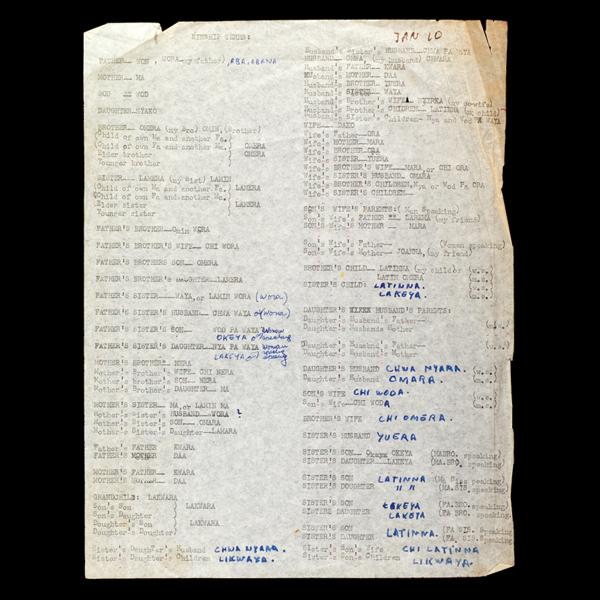 KINSHIP TERMS:
JAN 10
FATHER WON, WORA (my father), ABA, ABAWA
MOTHER MA
SON WOD
DAUGHTER NYAKO
BROTHER OMERA (my Bro) OMIN, (Brother)
(Child of own Fa and another Mo.
(Child of own Mo and another Fa. OMERA
Elder brother OMERA
Younger brother
SISTER LAMERA (my Sist) LAMIN
(Child of own Fa and another Mo. LAMERA
(Child of own Mo and another Fa.
Elder sister LAMERA
Younger sister
FATHER'S BROTHER Omin WORA
FATHER'S BROTHER'S WIFE CHI WORA
FATHER'S BROTHERS SON OMERA
FATHER'S BROTHER'S DAUGHTER LAMERA
FATHER'S SISTER WAYA, or LAMIN WORA (Wora)
FATHER'S SISTER'S HUSBAND CHWA WAYA (Wora)
FATHER'S SISTER'S SON WOD PA WAYA Woman
OKEYA speaking
FATHER'S SISTER'S DAUGHTER NYA PA WAYA Woman
LAKEYA
MOTHER'S BROTHER NERA
Mother's Brother's WIFE CHI NERA
Mother's brother's SON NERA
Mother's Brother's DAUGHTER MA
MOTHER'S SISTER MA, or LAMIN MA
Mother's Sister's HUSBAND WORA ?
Mother's Sister's SON OMARA
Mother's Sister's Daughter LAMARA
Father's FATHER KWARA
FATHER'S MOTHER DAA
MOTHER'S FATHER KWARA
MOTHER'S MOTHER DAA
GRANDCHILD: LAKWARA
Son's Son LAKWARA
Son's Daughter
Doughter's Son LAKWARA
Doughter's Daughter
Sister's Daughter's Husband CHWA NYARA.
Sister's Daughter's Children LIKWAYA.
Husband's Sister's HUSBAND CHWA PA WAYA
HUSBAND CHWA, (my husband) CHWARA
Husband's FATHER KWARA
Husband's MOTHER DAA
Husband's BROTHER YUERA
Husband's SISTER WAYA
Husband's Brother's WIFE NYEKA (my cowife)
Husband's Brother's CHILDREN LATINNA (my child)
Husband's Sister's Children Nya and Wod PA WAYA
WIFE DAKO
Wife's Father ORA
Wife's MOTHER MARA
Wife's BROTHER ORA
Wife's SISTER YUERA
Wife's BROTHER'S WIFE MARA, or CHI ORA
Wife's SISTER'S HUSBAND OMARA
Wife's BROTHER'S CHILDREN, Nya or Wod PA ORA
Wife's SISTER'S CHILDREN
SON'S WIFE'S PARENTS: (Man Speaking)
Son's Wife's FATHER LAREMA (my friend)
SON'S Wife's MOTHER MARA
Son's Wife's Father (Woman speaking)
Son's Wife's Mother JOANNA, (my friend)
BROTHER'S CHILD LATINNA (my child) (m.s.)
LATIN OMERA (w.s.)
SISTER'S CHILD: LATINNA. (m.s.)
LAKEYA. (w.s.)
DAUGHTER'S HUSBAND'S PARENTS:
Daughter's Husband's Father
Daughter's Husbands Mother (m.s.)
Daughter's Husband's Father
Daughter's Husband's Mother (w.s.)
DAUGHTER'S HUSBAND CHWA NYARA. (m.s.)
Daughter's Husband OMARA. (w.s.)
SON'S WIFE CHI WODA. (m.s.)
Son's Wife CHI WODA (w.s.)
BROTHER'S WIFE CHI OMERA.
SISTER'S HUSBAND YUERA
SISTER'S SON OKEYA (MABRO. speaking)
SISTER'S DAUGHTER LAKEYA (MA.BRO. speaking)
SISTER'S SON LATINNA (Ma Sis speaking)
SISTER'S DOUGHTER " " (MA.SIS. speaking)
SISTER'S SON OKEYA (FA.BRO. speaking)
SISTERS DAUGHTER LAKEYA (FA BRO. speaking)
SISTER'S SON LATINNA. (FA SIS. speaking)
SISTER'S DAUGHTER (FA. SIS. speaking)
Sister's Son's Wife CHI LATINNA
Sister's Son's Children LIKWAYA.